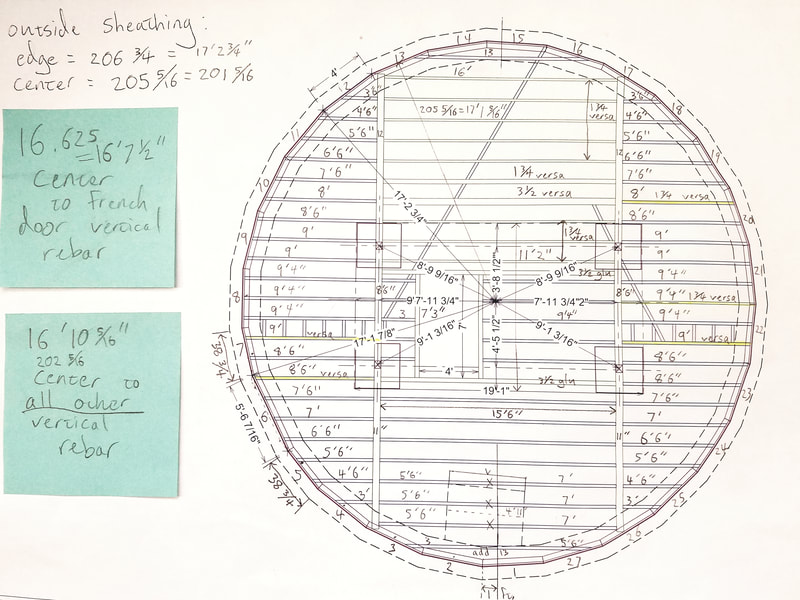 outside sheathing:
edge = 206 3/4 = 17'2 3/4"
center = 205 5/16 = 201 5/16
16.625
=16'7 1/2"
Center
to French
door vertical
rebar
16'10 5/16"
202 5/16
Center to
all other
vertical
rebar
14 15
13 13 16
12 17
4' 16' 18
3'6" 3'6"
4'6" 205 5/16=17'1 5/16" 1 3/4 versa 4'6"
11 5'6" 12 12 5'6" 19
6'6" 6'6"
7'6" 1 3/4 versa 7'6"
10 8' 3 1/2 versa 8' 1 3/4 versa
8'6" 17'-2 3/4 8'6" 20
9' 1 3/4 versa 9'
9' 11'2" 9'
9'4" 8'-9 9/16" 3'-8 1/2" 8'-9 9/16" 3 1/2 gln 9'4" 21
8 9'4" 8'6" 9'7'-11 3/4" 7'-11 3/4"2" 8'6" 9'4" 1 3/4 versa
9'4" 3 7'3" 9'4" 9'4"
9' versa 17'-1 7/8" 9'-1 3/16" 4'-5 1/2" 9'-1 3/16" 9' versa 22
38 3/4 7 8'6" 8'6"
8'6" versa 4' 3 1/2 gln 8'6"
7'6" 19'-1" 7'6" 23
5'-6 7/16" 6 7' 15'6" 7'
6'6" 11" 11" 6'6" 24
5'6" 5'6"
38 3/4 5 4'6" 5'6" 7' 4'6" 25
3' 5'6" 7' 3'
4 5'6" 7' 26
3 3 add 13 5'6" 27
2 1